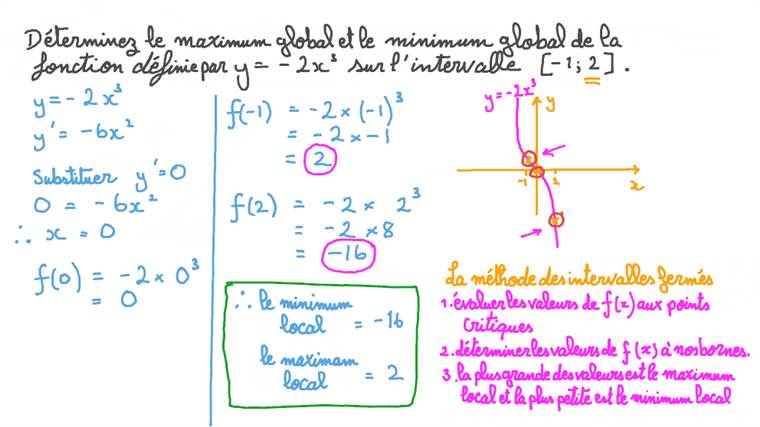 Déterminez le maximum global et le minimum global de la
fonction définie par y = - 2x³ sur l'intervalle [-1; 2].
y = - 2x³
y' = -6x²
Substituer y' = 0
0 = -6x²
∴ x = 0
f(0) = -2 × 0³
= 0
f(-1) = -2 × (-1)³
= -2 × -1
= 2
f(2) = -2 × 2³
= -2 × 8
= -16
∴ le minimum
local = -16
le maximam
local = 2
y = -2x³
y
-1
2
x
La méthode des intervalles fermés
1. évaluer les valeurs de f(x) aux points
critiques
2. déterminer les valeurs de f(x) à nos bornes.
3. la plus grande des valeurs est le maximum
local et la plus petite est le minimum local